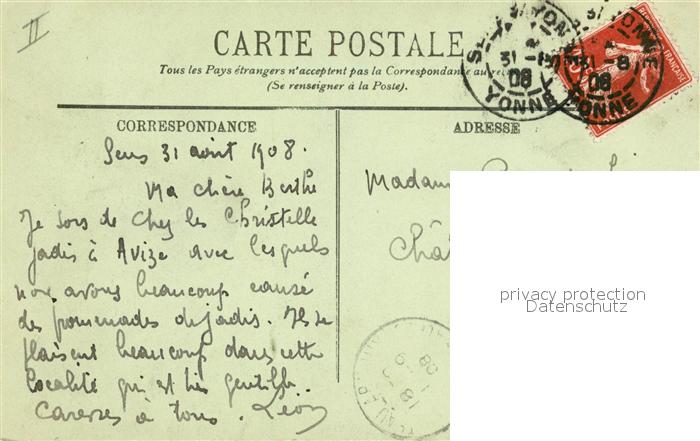 II
CARTE POSTALE
Tous les Pays étrangers n'acceptent pas la Correspondance au
(Se renseigner à la Poste).
CORRESPONDANCE
ADRESSE
YONNE
31 -8
08
YONNE
31 -8
08
YONNE
Sens 31 août 1908.
Ma chère Berthe
Je sors de chez les Christelle
jadis à Avize avec lesquels
nous avons beaucoup causé
des promenades de jadis. Ils se
plaisent beaucoup dans cette
localité qui est très gentille.
Caresses à tous. Léon
Madame
Chât
privacy protection
Datenschutz